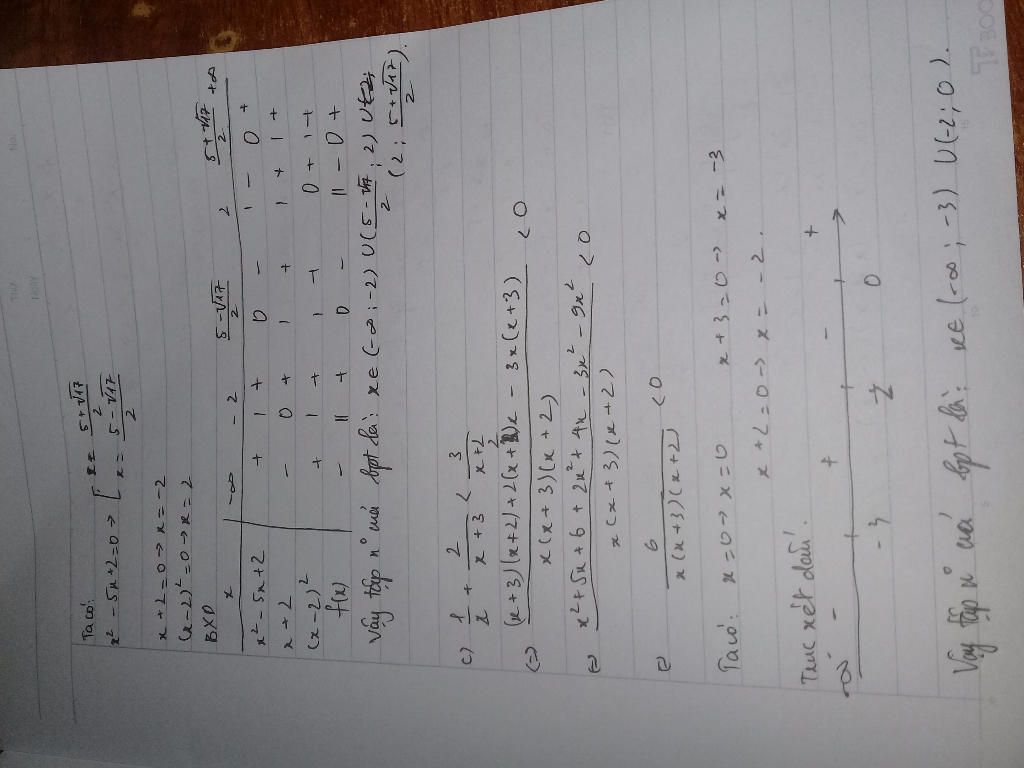 Ta có:
x² - 5x + 2 = 0 → [ x = (5+√17)/2
x = (5-√17)/2
x + 2 = 0 → x = -2
(x-2)² = 0 → x = 2
BXD
x | -∞ -2 (5-√17)/2 2 (5+√17)/2 +∞
x² - 5x + 2 | + | + 0 - | - 0 +
x + 2 | - 0 + | + | + | +
(x-2)² | + | + | + 0 + | +
f(x) | - || + 0 - || - 0 +
Vậy tập n° của bpt là: x ∈ (-∞; -2) U ((5-√17)/2; 2) U
(2; (5+√17)/2).
c) 1/x + 2/(x+3) < 3/(x+2)
(=) ((x+3)(x+2) + 2(x+2)x - 3x(x+3))/(x(x+3)(x+2)) < 0
(=) (x² + 5x + 6 + 2x² + 4x - 3x² - 9x²)/(x(x+3)(x+2)) < 0
(=) 6/(x(x+3)(x+2)) < 0
Ta có: x = 0 → x = 0 x + 3 = 0 → x = -3
x + 2 = 0 → x = -2.
Trục xét dấu.
-∞ - + - +
-3 0
Vậy tập n° của bpt là: x ∈ (-∞; -3) U (-2; 0).
TP 300